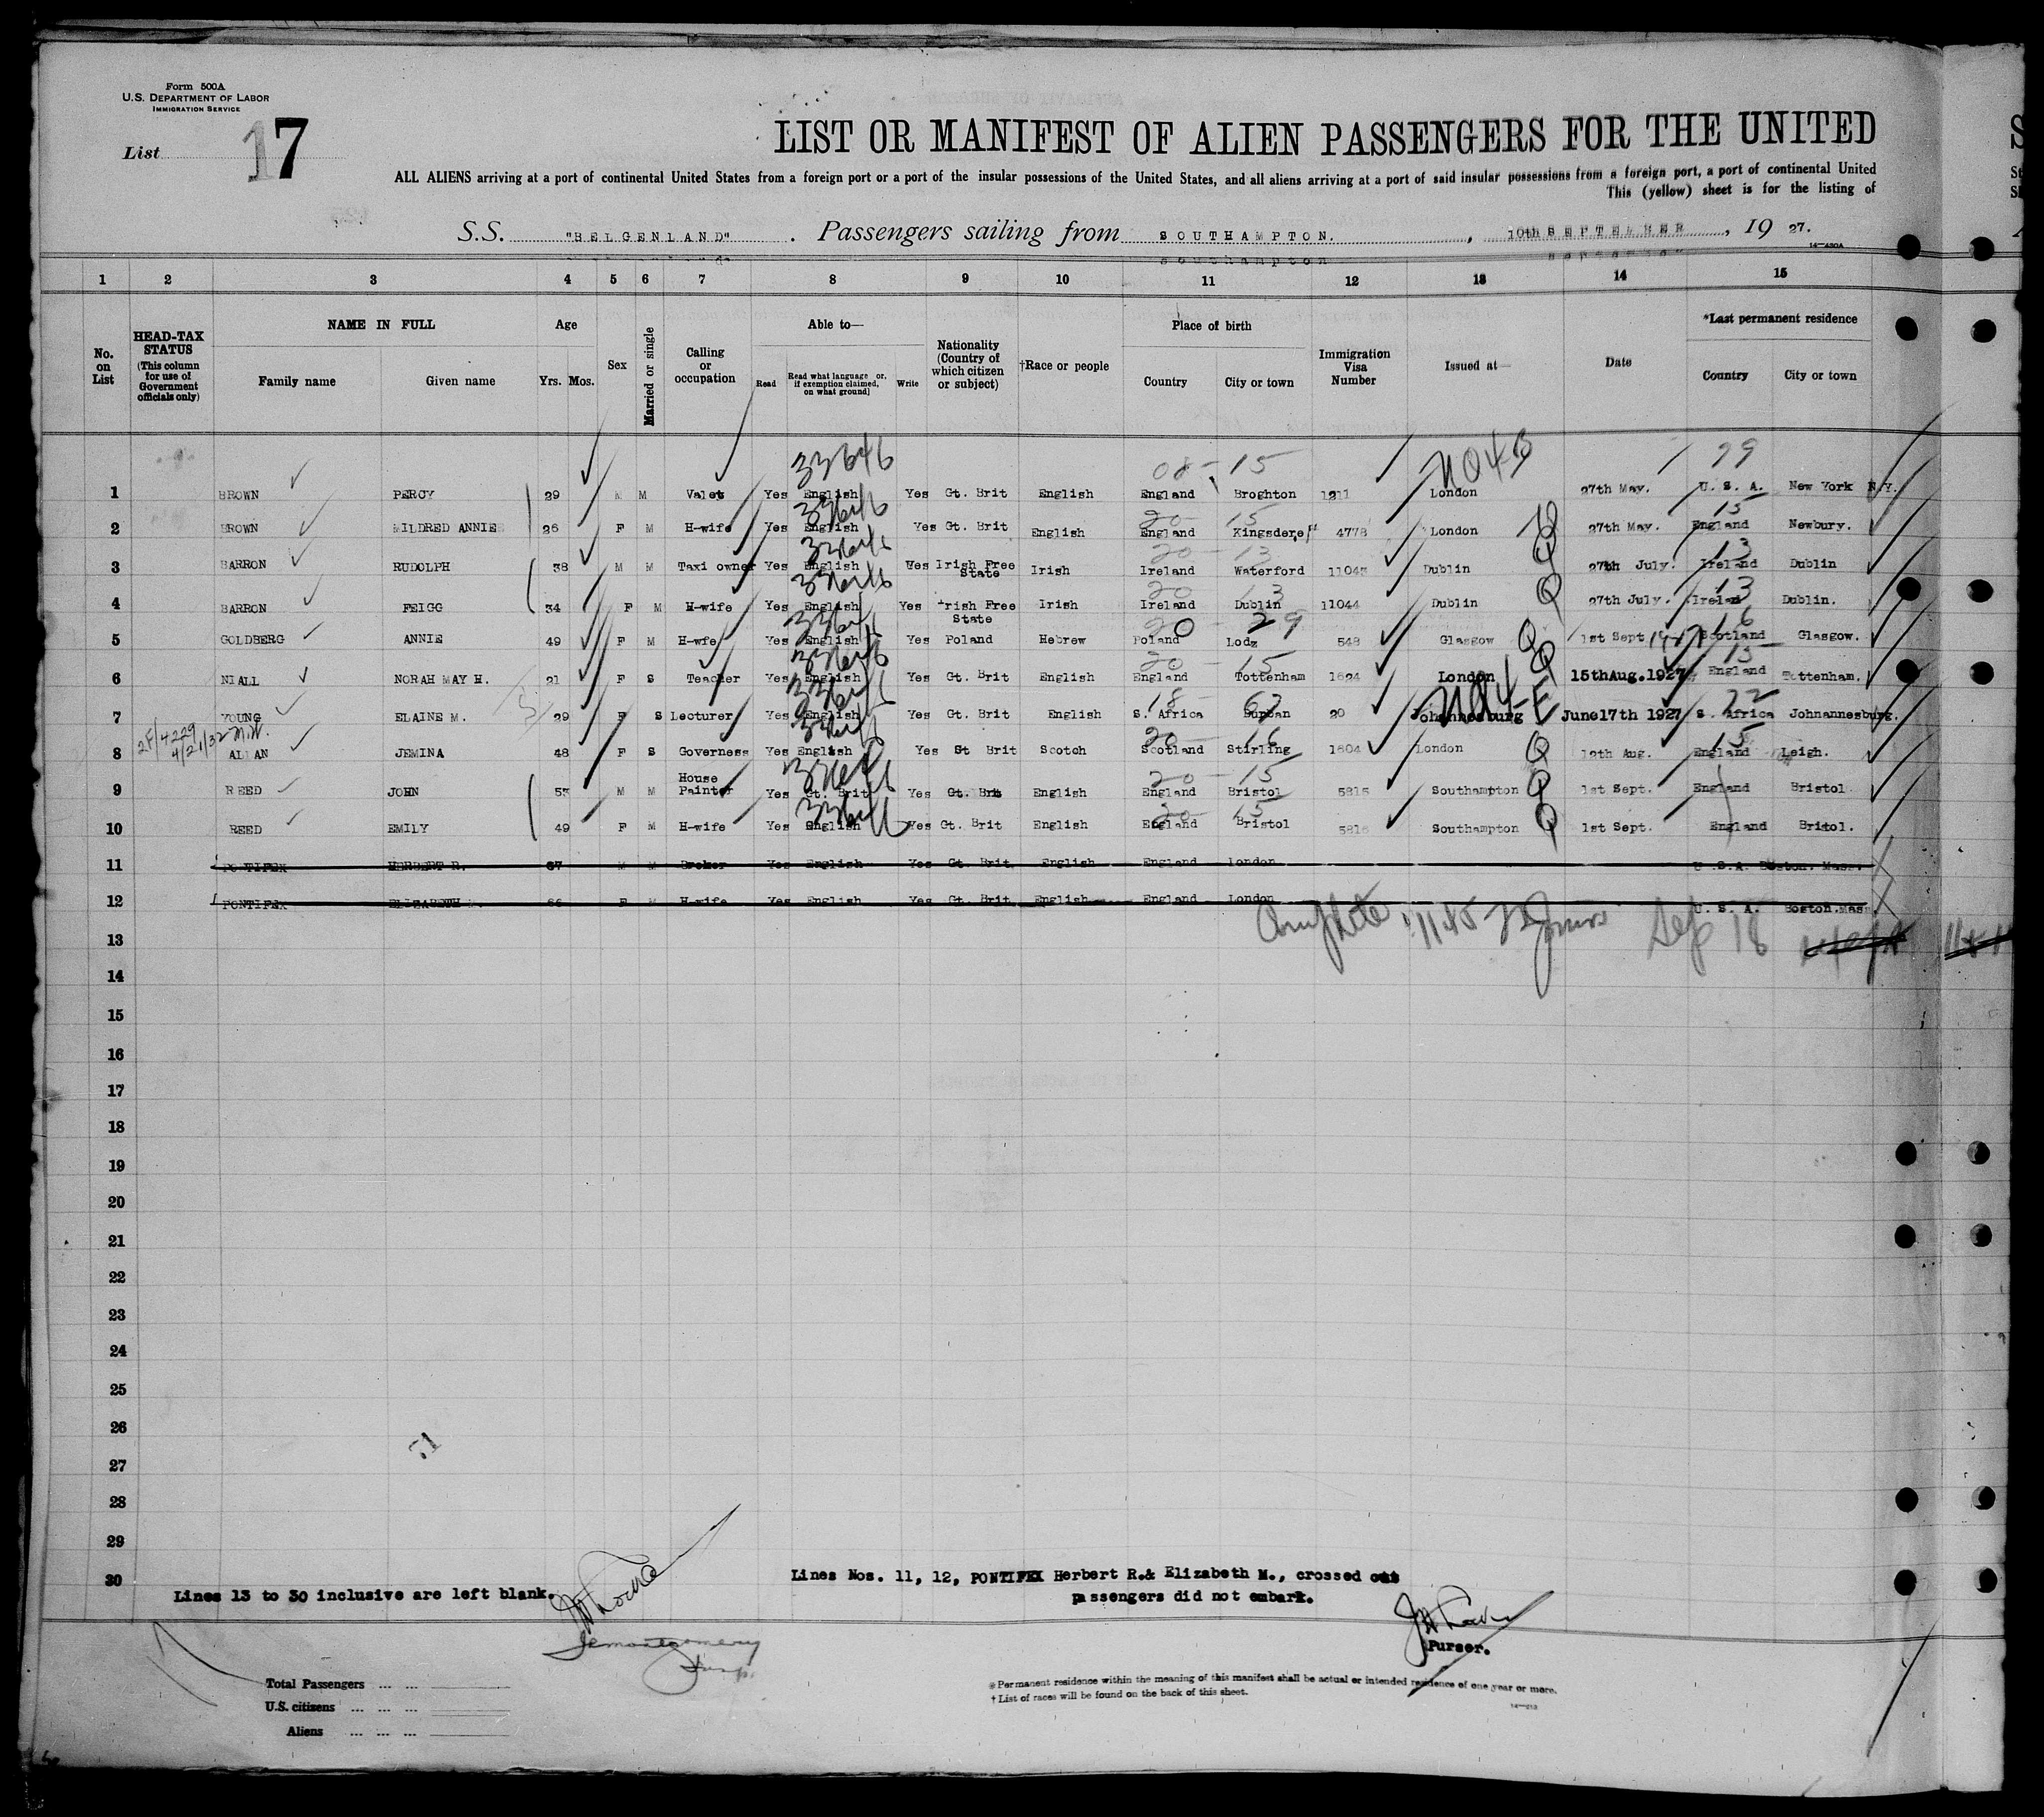 Form 500A
U.S. DEPARTMENT OF LABOR
IMMIGRATION SERVICE
List 17
LIST OR MANIFEST OF ALIEN PASSENGERS FOR THE UNITED
ALL ALIENS arriving at a port of continental United States from a foreign port or a port of the insular possessions of the United States, and all aliens arriving at a port of said insular possessions from a foreign port, a port of continental United
This (yellow) sheet is for the listing of
S.S. "BELGENLAND". Passengers sailing from SOUTHAMPTON., 10th SEPTEMBER, 19 27.
14—430A
1 2 3 4 5 6 7 8 9 10 11 12 13 14 15
No. on List
HEAD-TAX STATUS (This column for use of Government officials only)
NAME IN FULL
Family name Given name
Age
Yrs. Mos.
Sex
Married or single
Calling or occupation
Able to—
Read Read what language [or, if exemption claimed, on what ground] Write
Nationality (Country of which citizen or subject)
†Race or people
Place of birth
Country City or town
Immigration Visa Number
Issued at—
Date
*Last permanent residence
Country City or town
33646 08-15 NO4B 99
1 BROWN PERCY 29 M M Valet Yes English Yes Gt. Brit English England Broghton 1211 London 27th May. U. S. A. New York N.Y.
33646 20-15 15
2 BROWN MILDRED ANNIE 26 F M H-wife Yes English Yes Gt. Brit English England Kingsdere 4778 London 27th May. England Newbury.
33646 20-13 Q 13
3 BARRON RUDOLPH 38 M M Taxi owner Yes English Yes Irish Free State Irish Ireland Waterford 11043 Dublin 27th July. Ireland Dublin
33646 20-13 Q 13
4 BARRON FEIGG 34 F M H-wife Yes English Yes Irish Free State Irish Ireland Dublin 11044 Dublin 27th July. Ireland Dublin.
20-29 Q 16
5 GOLDBERG ANNIE 49 F M H-wfe Yes English Yes Poland Hebrew Poland Lodz 548 Glasgow 1st Sept Scotland Glasgow.
33646 20-15 Q 15
6 NIALL NORAH MAY H. 21 F S Teacher Yes English Yes Gt. Brit English England Tottenham 1624 London 15thAug.1927 England Tottenham.
18-62 NO4-E 72
7 YOUNG ELAINE M. 29 F S Lecturer Yes English Yes Gt. Brit English S. Africa Durban 20 Johannesburg June17th 1927 S. Africa Johnannesburg.
2F/4229 4/21/32 20-16 Q 15
8 ALLAN JEMINA 48 F S Governess Yes English Yes Gt Brit Scotch Scotland Stirling 1604 London Aug. England Leigh.
20-15 Q
9 REED JOHN 53 M M House Painter Yes Gt. Brit Yes Gt. Brit English England Bristol 5815 Southampton 1st Sept. England Bristol
33646 20-15 Q
10 REED EMILY 49 F M H-wife Yes English Yes Gt. Brit English England Bristol 5816 Southampton 1st Sept. England Bristol.
11 PONTIFEX HERBERT R. 67 M M Broker Yes English Yes Gt. Brit English England London U.S.A. Boston. Mass.
12 PONTIFEX ELIZABETH M. 66 F M H-wife Yes English Yes Gt. Brit English England London U. S. A. Boston.Mass
Complete 1145 Sep 18
13
14
15
16
17
18
19
20
21
22
23
24
25
26
27
28
29
30
71
Lines 13 to 30 inclusive are left blank.
Lines Nos. 11, 12, PONTIFEX Herbert R.& Elizabeth M., crossed out
passengers did not embark.
Montgomery
Purser.
Total Passengers
U.S. citizens
Aliens
*Permanent residence within the meaning of this manifest shall be actual or intended residence of one year or more.
†List of races will be found on the back of this sheet.